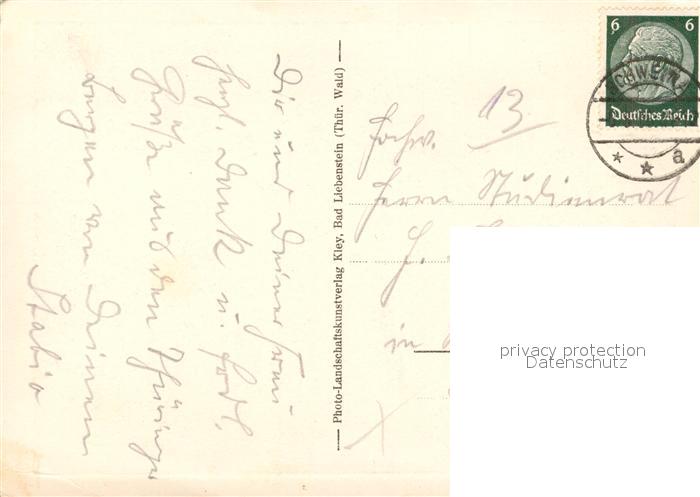 Dir und Deiner Frau
herzl. Dank u.
Grüße aus den Thüringer
Bergen von Deinem
Photo-Landschaftskunstverlag Kley, Bad Liebenstein (Thür. Wald)
6 6
Deutsches Reich
a
13
Herrn Studienrat
H.
in
privacy protection
Datenschutz